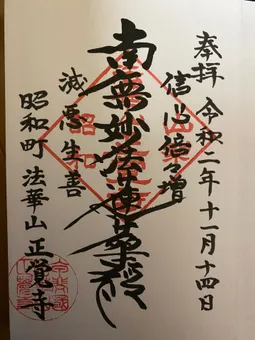 奉拝 令和二年十一月十四日
信心倍々増
南無妙法蓮華経
滅悪生善
昭和町 法華山 正覚寺
昭和